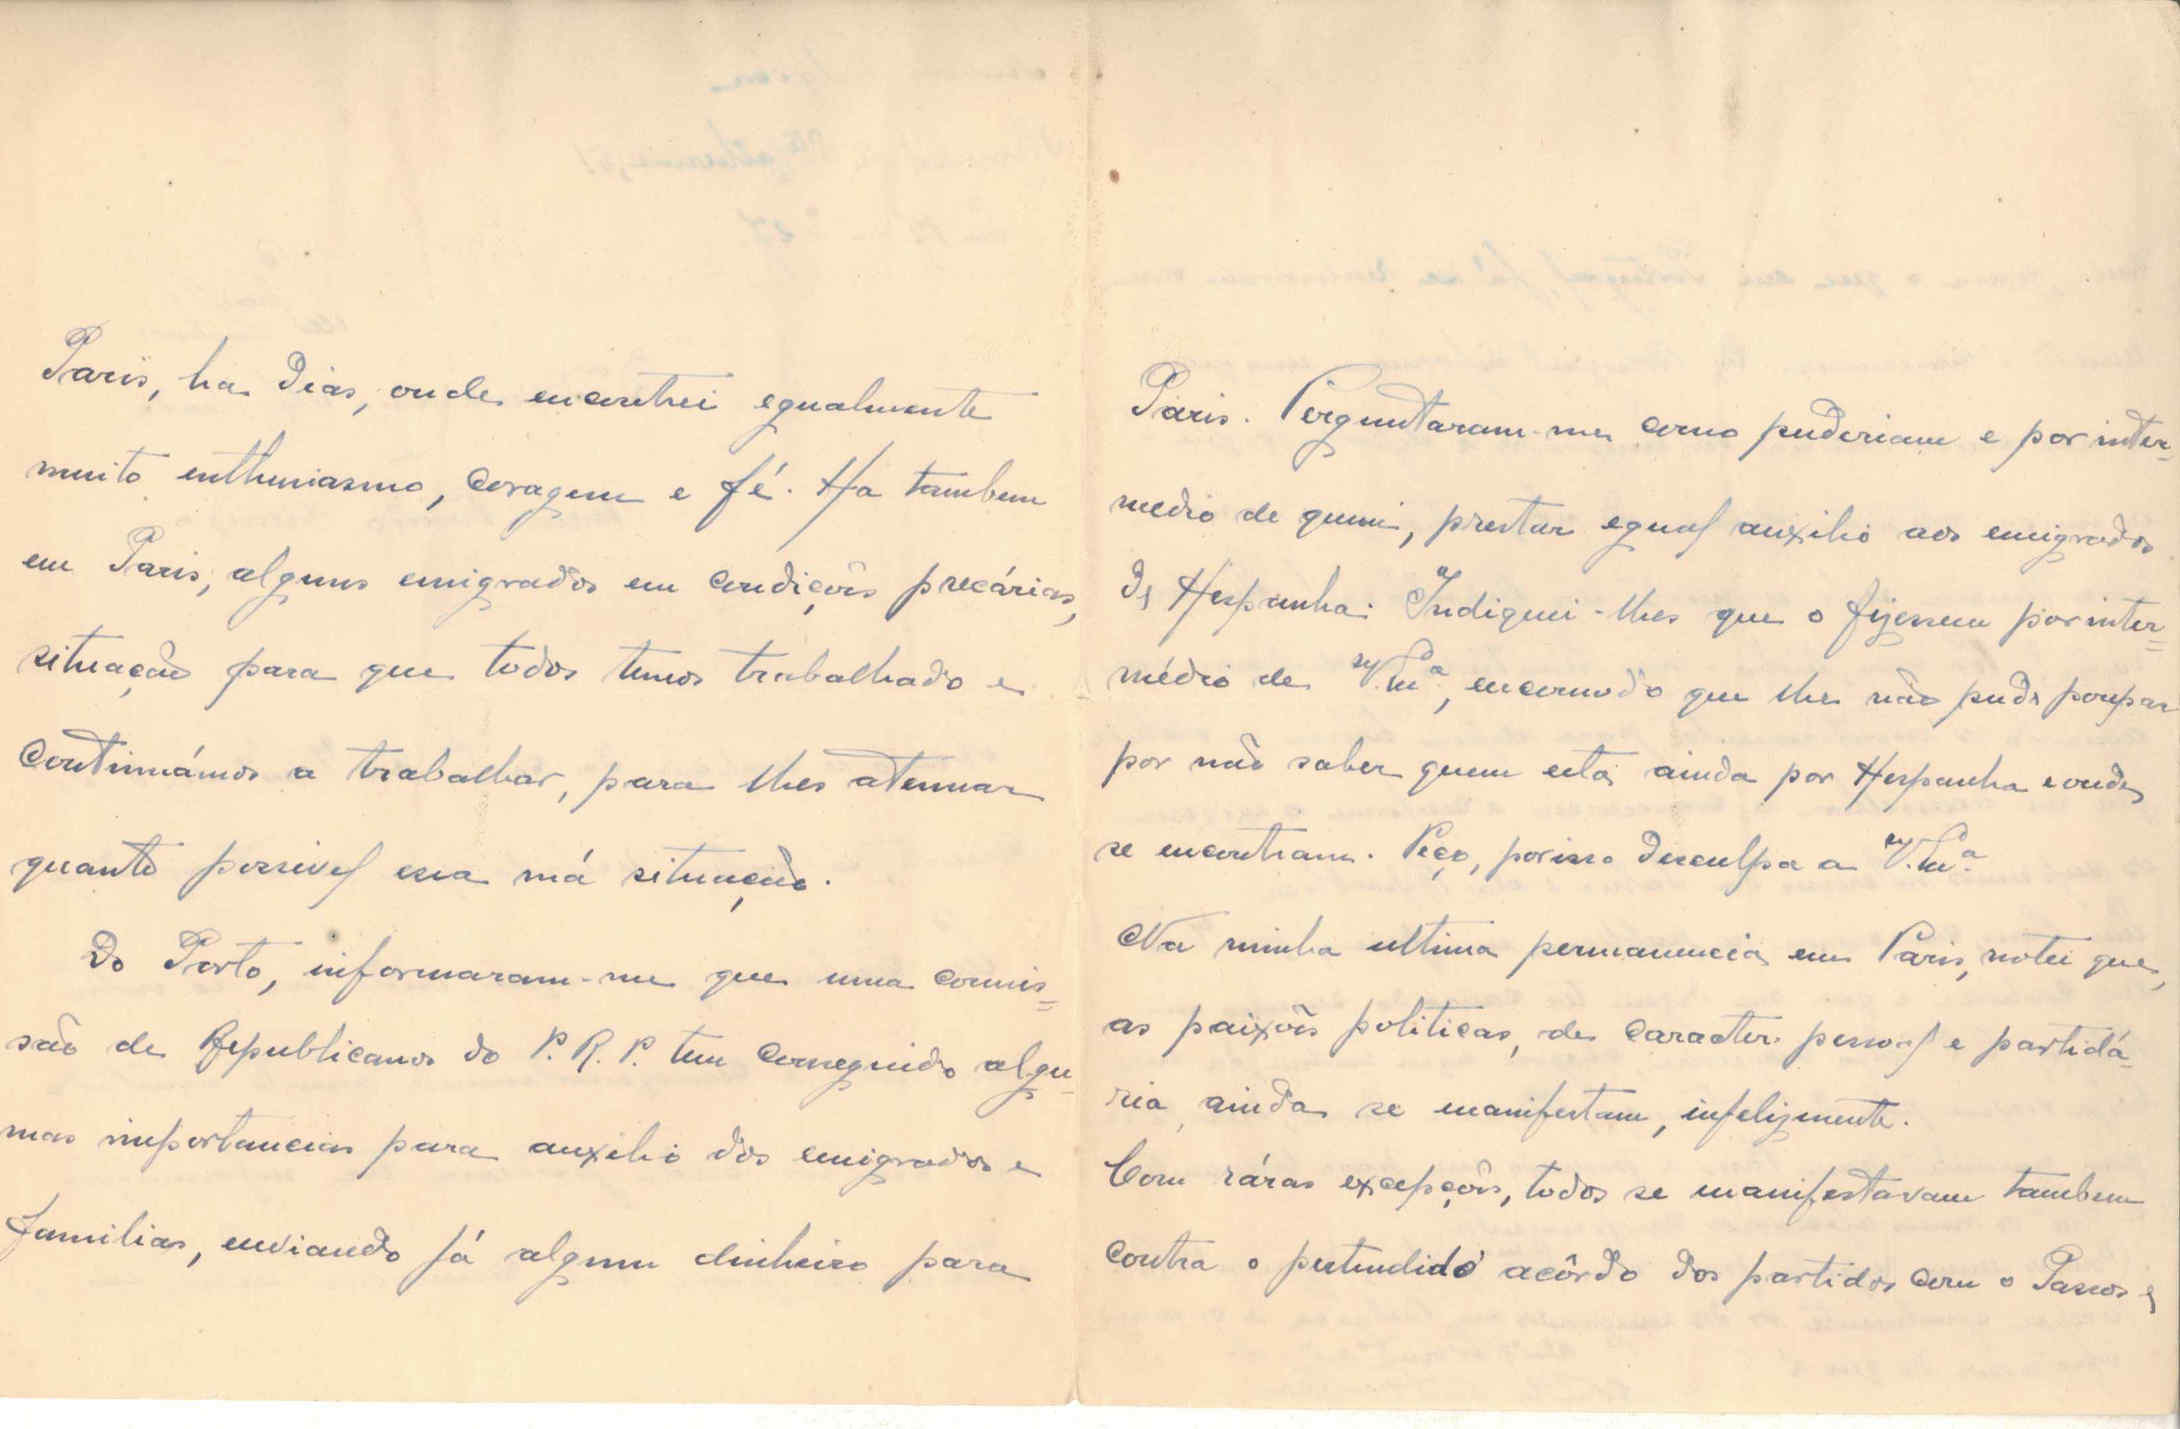 Paris, ha dias, onde encontrei egualmente
muito enthusiasmo, coragem e fé. Ha tambem
em Paris, alguns emigrados em condições precárias,
situação para que todos temos trabalhado e
continuámos a trabalhar, para lhes atenuar
quanto possivel essa má situação.
Do Porto, informaram-me que uma comis=
são de Republicanos do P. R. P. tem conseguido algu-
mas importancias para auxilio dos emigrados e
familias, enviando já algum dinheiro para
Paris. Perguntaram-me como puderiam e por inter=
medio de quem, prestar egual auxilio aos emigrados
de Hespanha. Indiquei-lhes que o fizessem por inter=
médio de V. Exa, encomodo que lhes não pude poupar
por não saber quem está ainda por Hespanha e onde
se encontram. Peço, por isso desculpa a V. Exa.
Na minha ultima permanencia em Paris, notei que,
as paixões politicas, de caracter pessoal e partidá-
ria, ainda se manifestam, infelizmente.
Com ráras excepções, todos se manifestavam tambem
contra o pertendido acôrdo dos partidos com o Passos e